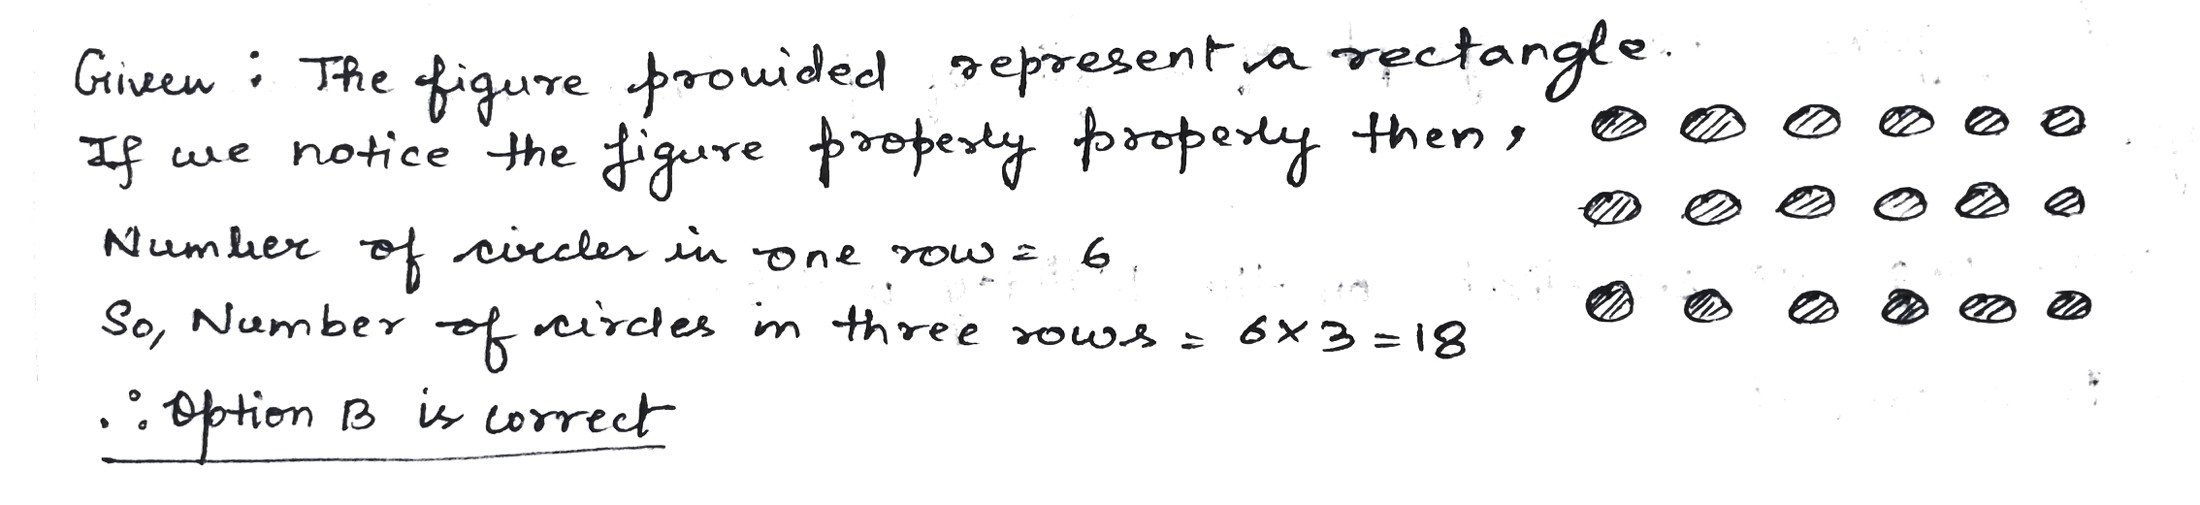 Given : The figure provided represent a rectangle.
If we notice the figure properly properly then,
Number of circles in one row = 6
So, Number of circles in three rows = 6×3=18
∴ Option B is correct